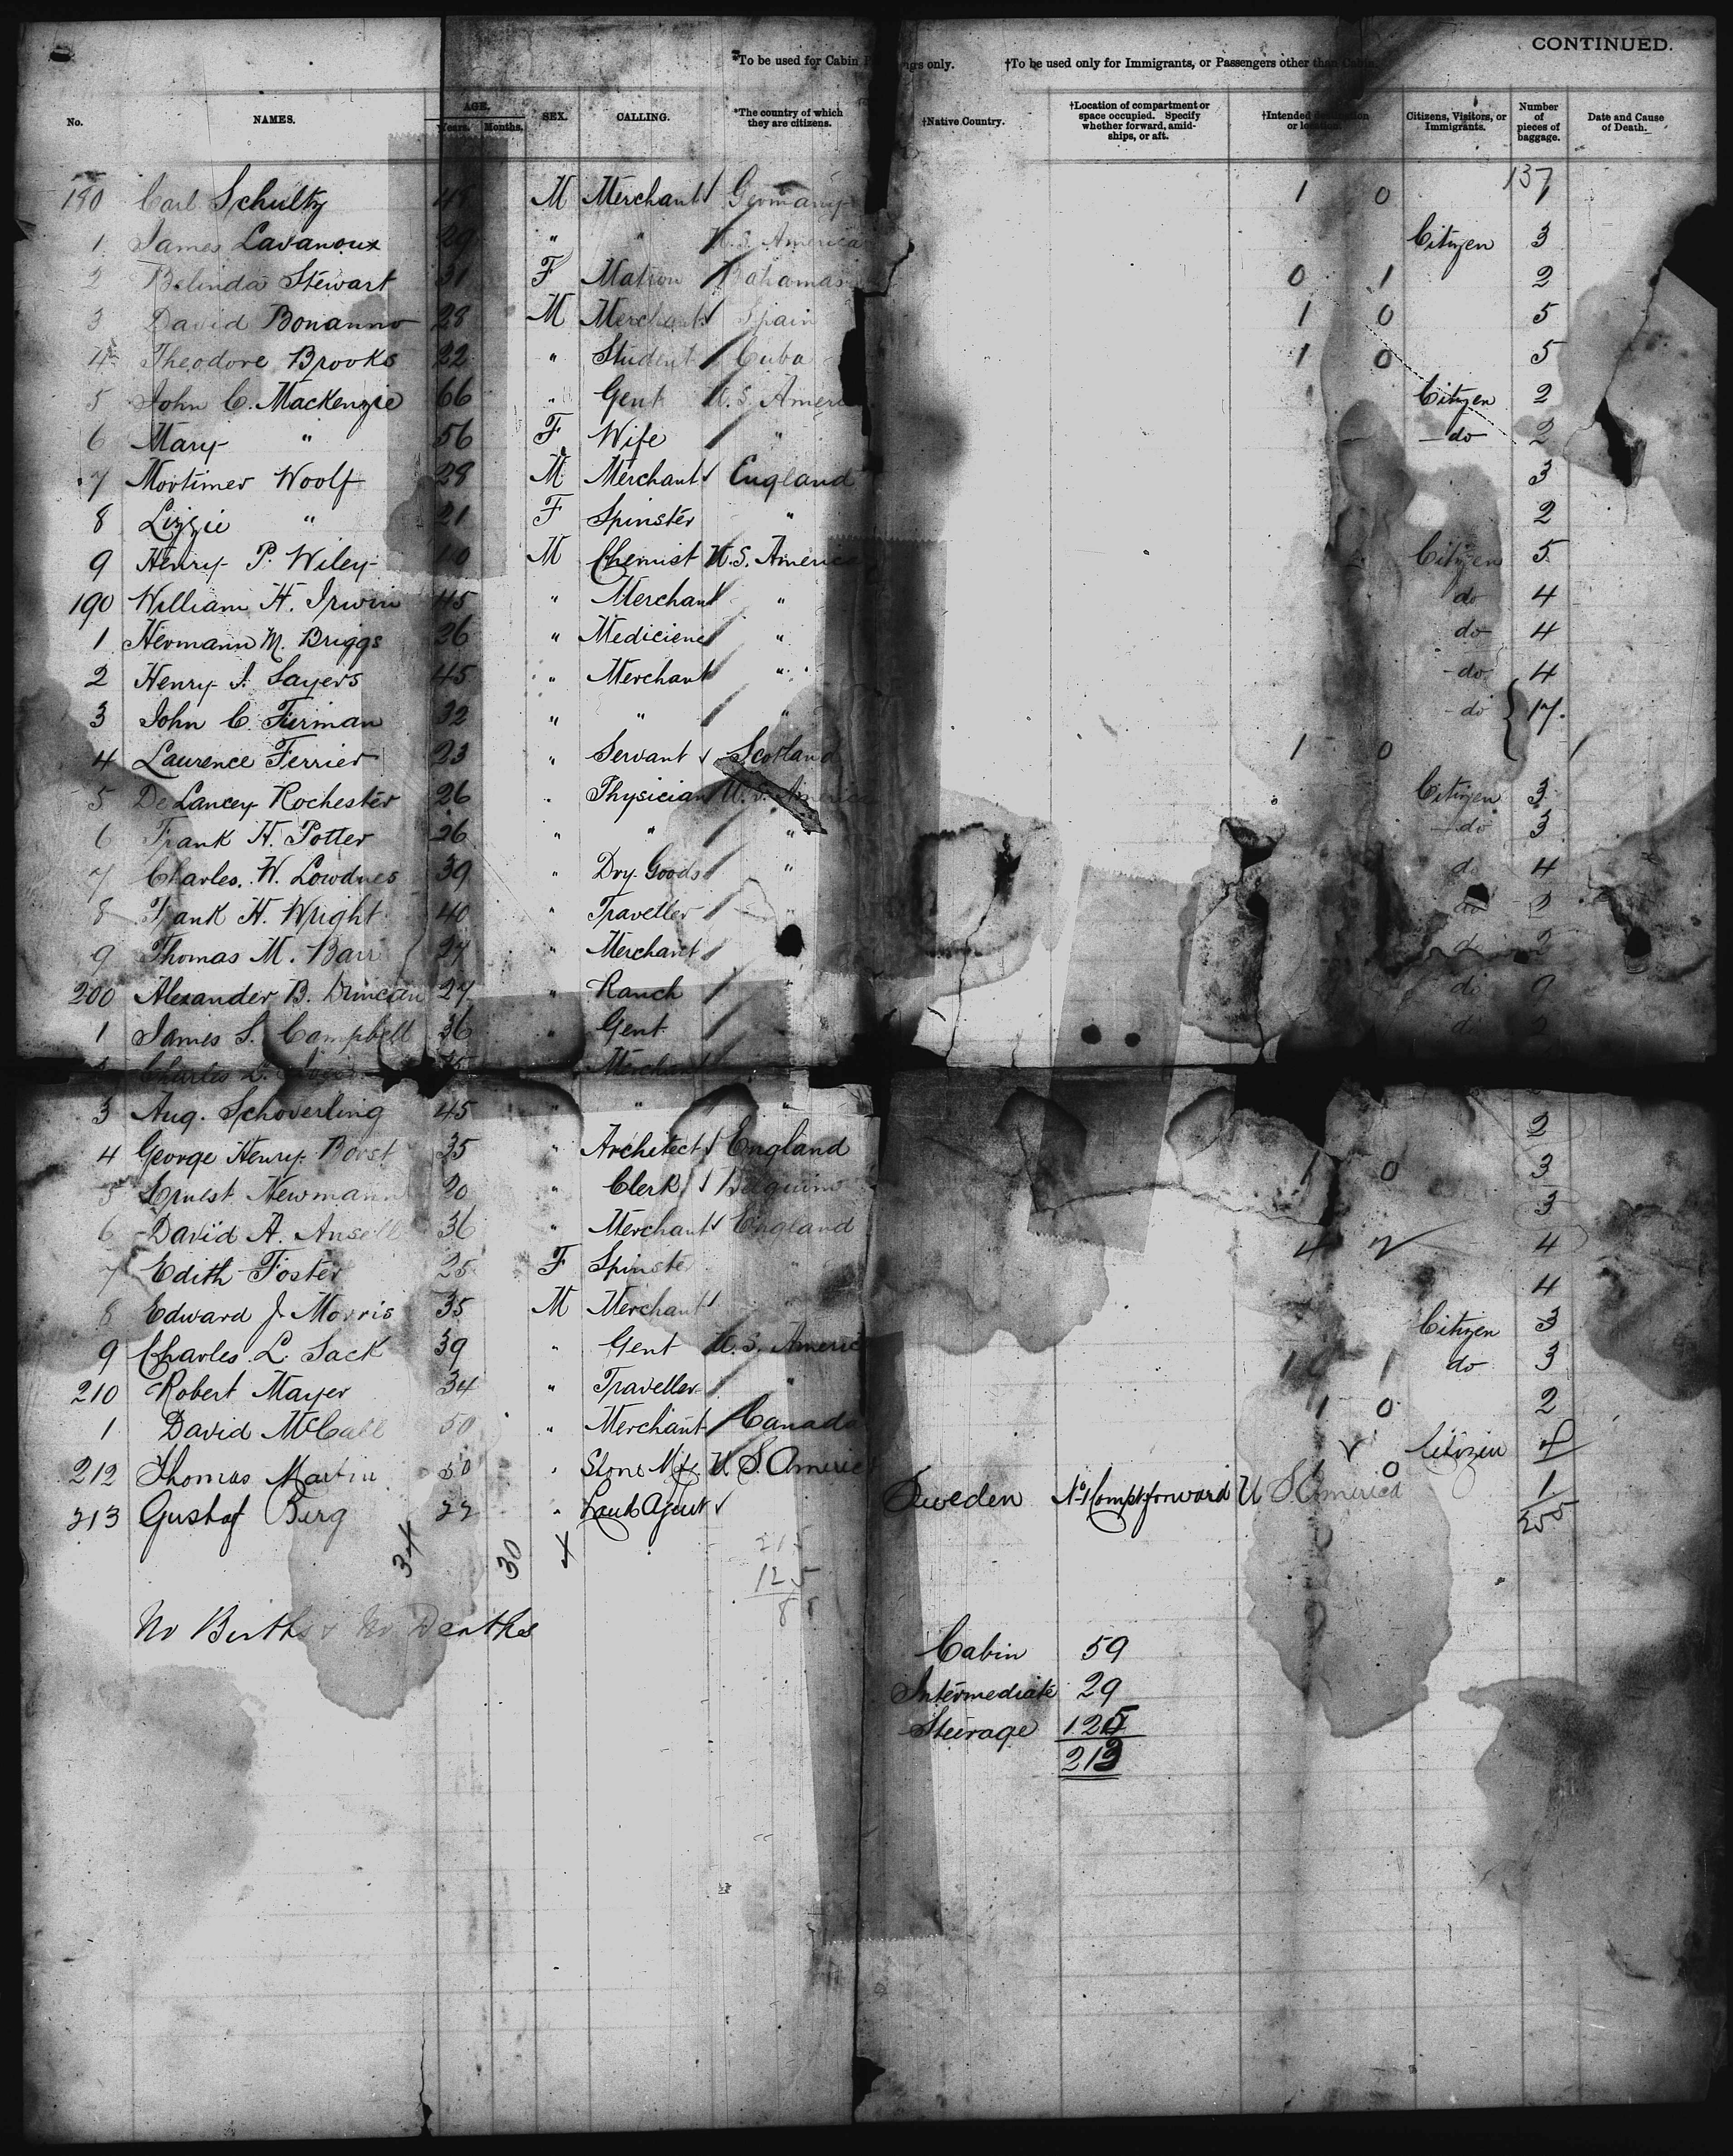 CONTINUED.
*To be used for Cabin only. †To be used only for Immigrants, or Passengers other than Cabin.
No. NAMES. AGE. Years. Months. SEX. CALLING. *The country of which they are citizens. †Native Country. †Location of compartment or space occupied. Specify whether forward, amid-ships, or aft. †Intended destination or location. Citizens, Visitors, or Immigrants. Number of pieces of baggage. Date and Cause of Death.
137
180 Carl Schultz M Merchant Germany 1 0 1
1 James Lavanoux 29 " " U.S. America Citizen 3
2 Belinda Stewart 31 F Matron Bahamas 0 1 2
3 David Bonanno 28 M Merchant Spain 1 0 5
4 Theodore Brooks 22 " Student Cuba 1 0 5
5 John C. Mackenzie 66 " Gent U.S. Americ Citizen 2
6 Mary " 56 F Wife " do 2
7 Mortimer Woolf 28 M Merchant England 3
8 Lizzie " 21 F Spinster " 2
9 Henry P. Wiley 40 M Chemist U.S. America Citizen 5
190 William H. Irwin 45 " Merchant " do 4
1 Hermann M. Briggs 26 " Mediciene " do 4
2 Henry J. Sayers 45 " Merchant " do 4
3 John C. Tierman 32 " " " do 17.
4 Laurence Ferrier 23 " Servant Scotland 1 0
5 De Lancey Rochester 26 " Physician U.S. America Citizen 3
6 Frank H. Potter 26 " " " do 3
7 Charles. W. Lowdnes 39 " Dry Goods " do 4
8 Frank H. Wright 40 " Traveller " do 2
9 Thomas M. Barr 27 " Merchant do 2
200 Alexander B. Duncan 27 " Ranch do 9
1 James S. Campbell 36 " Gent do
Charles Merchant
3 Aug. Schoverling 45 " " " 2
4 George Henry 35 " Architect England 1 0 3
5 Ernest Newmann 20 " Clerk 3
6 David A. Ansell 36 " Merchant England 4 2 4
7 Edith Foster 25 F Spinster 4
8 Edward J. Morris 35 M Merchant " 3
9 Charles. L. Sack 39 " Gent U.S. Americ Citizen 3
210 Robert Mayer 34 " Traveller " do 2
1 David McCall 50 " Merchant Canada 1 0
212 Thomas Martin 50 " Stone Mfr. U S. Americ Citizen
213 Gustaf Berg 22 " Sweden No 1 Compt forward U S America 1
34 30 255
215
125
88
No Births & No Deaths
Cabin 59
Intermediate 29
Steerage 125
213